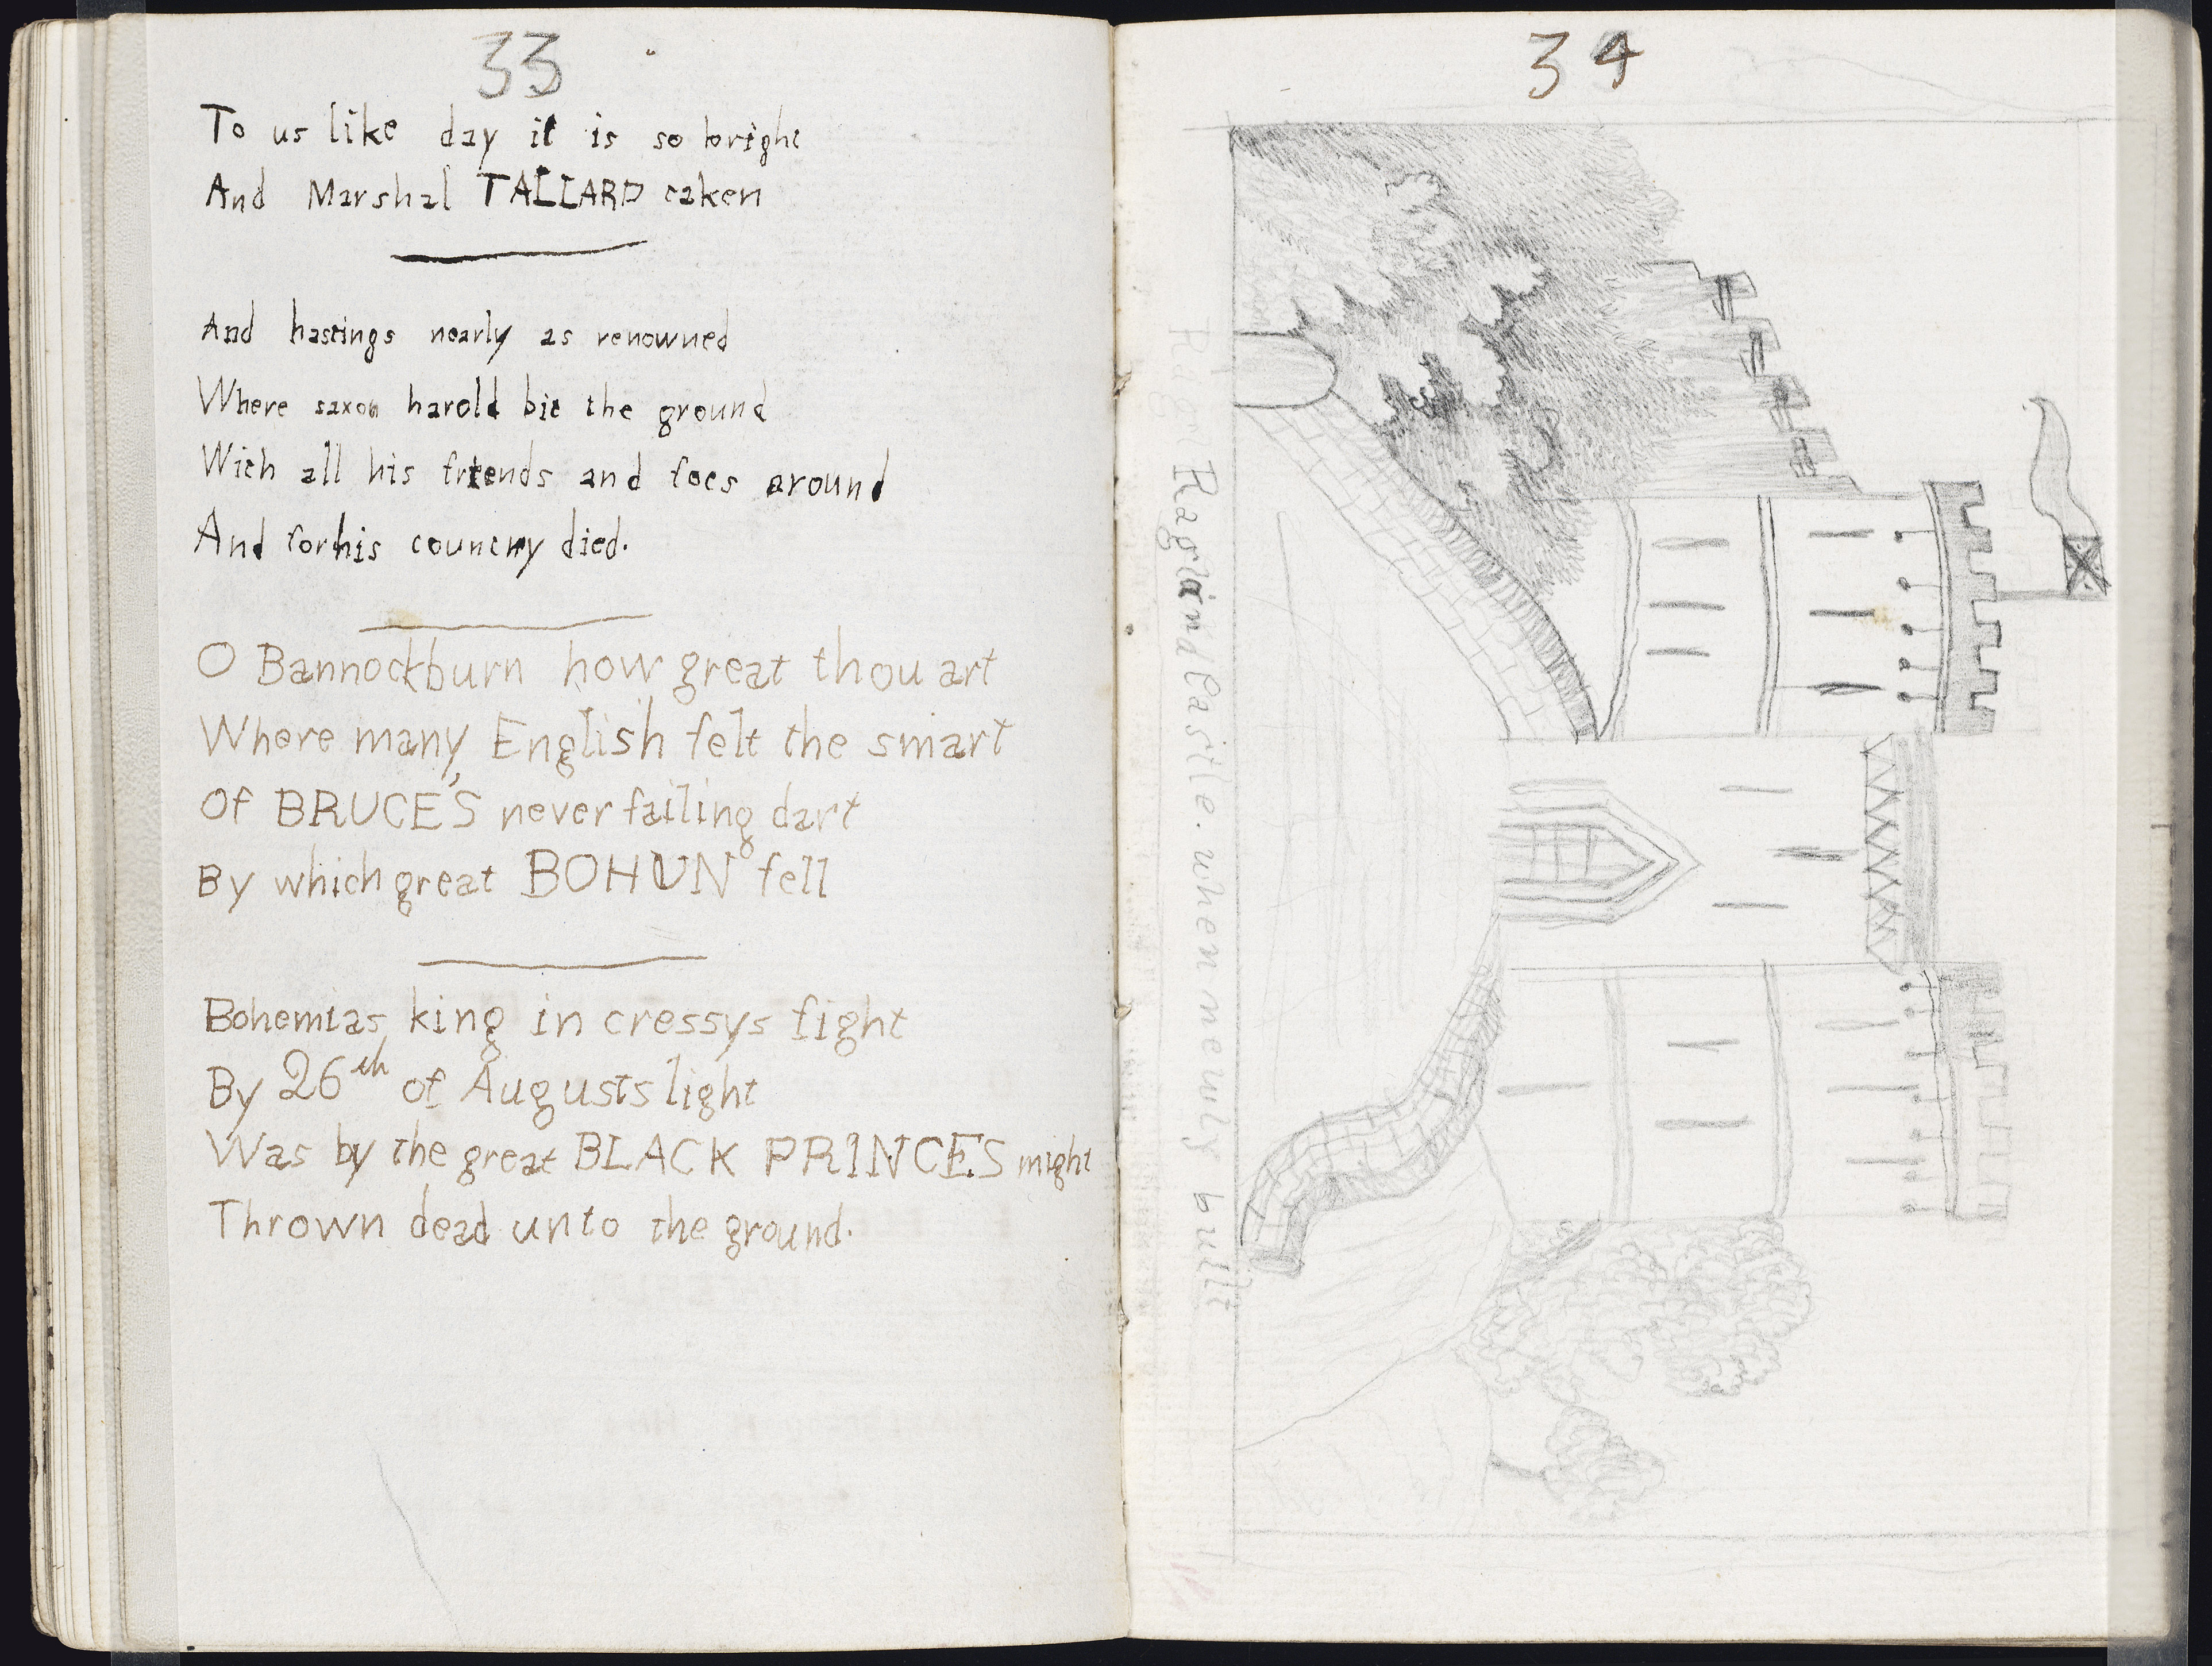 33
To us like day it is so bright
And Marshal TALLARD taken
And hastings nearly as renowned
Where saxon harold bit the ground
With all his friends and foes around
And for his country died.
O Bannockburn how great thou art
Where many English felt the smart
Of BRUCE'S never failing dart
By which great BOHUN fell
Bohemias king in cressys fight
By 26th of Augusts light
Was by the great BLACK PRINCES might
Thrown dead unto the ground.
34
Ragland Castle. when newly built